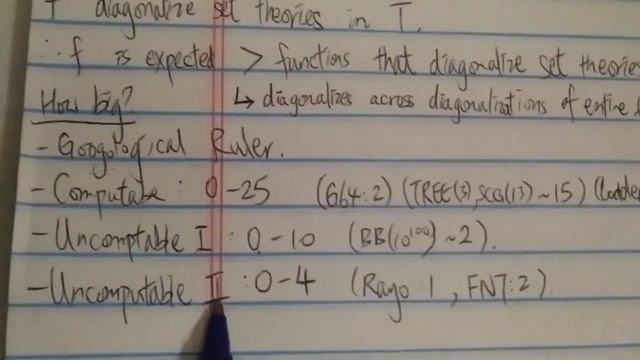 diagonalize set theories in T.
∴ f is expected > functions that diagonalize set theories
How big? ↳ diagonalizes across diagonalizations of entire
- Googological Ruler.
- Computable : 0-25 (G64:2) (TREE(3), SCG(13) ~15) (Loader
- Uncomptable I : 0-10 (BB(10^100) ~2).
- Uncomputable II : 0-4 (Rayo:1, FN7:2).